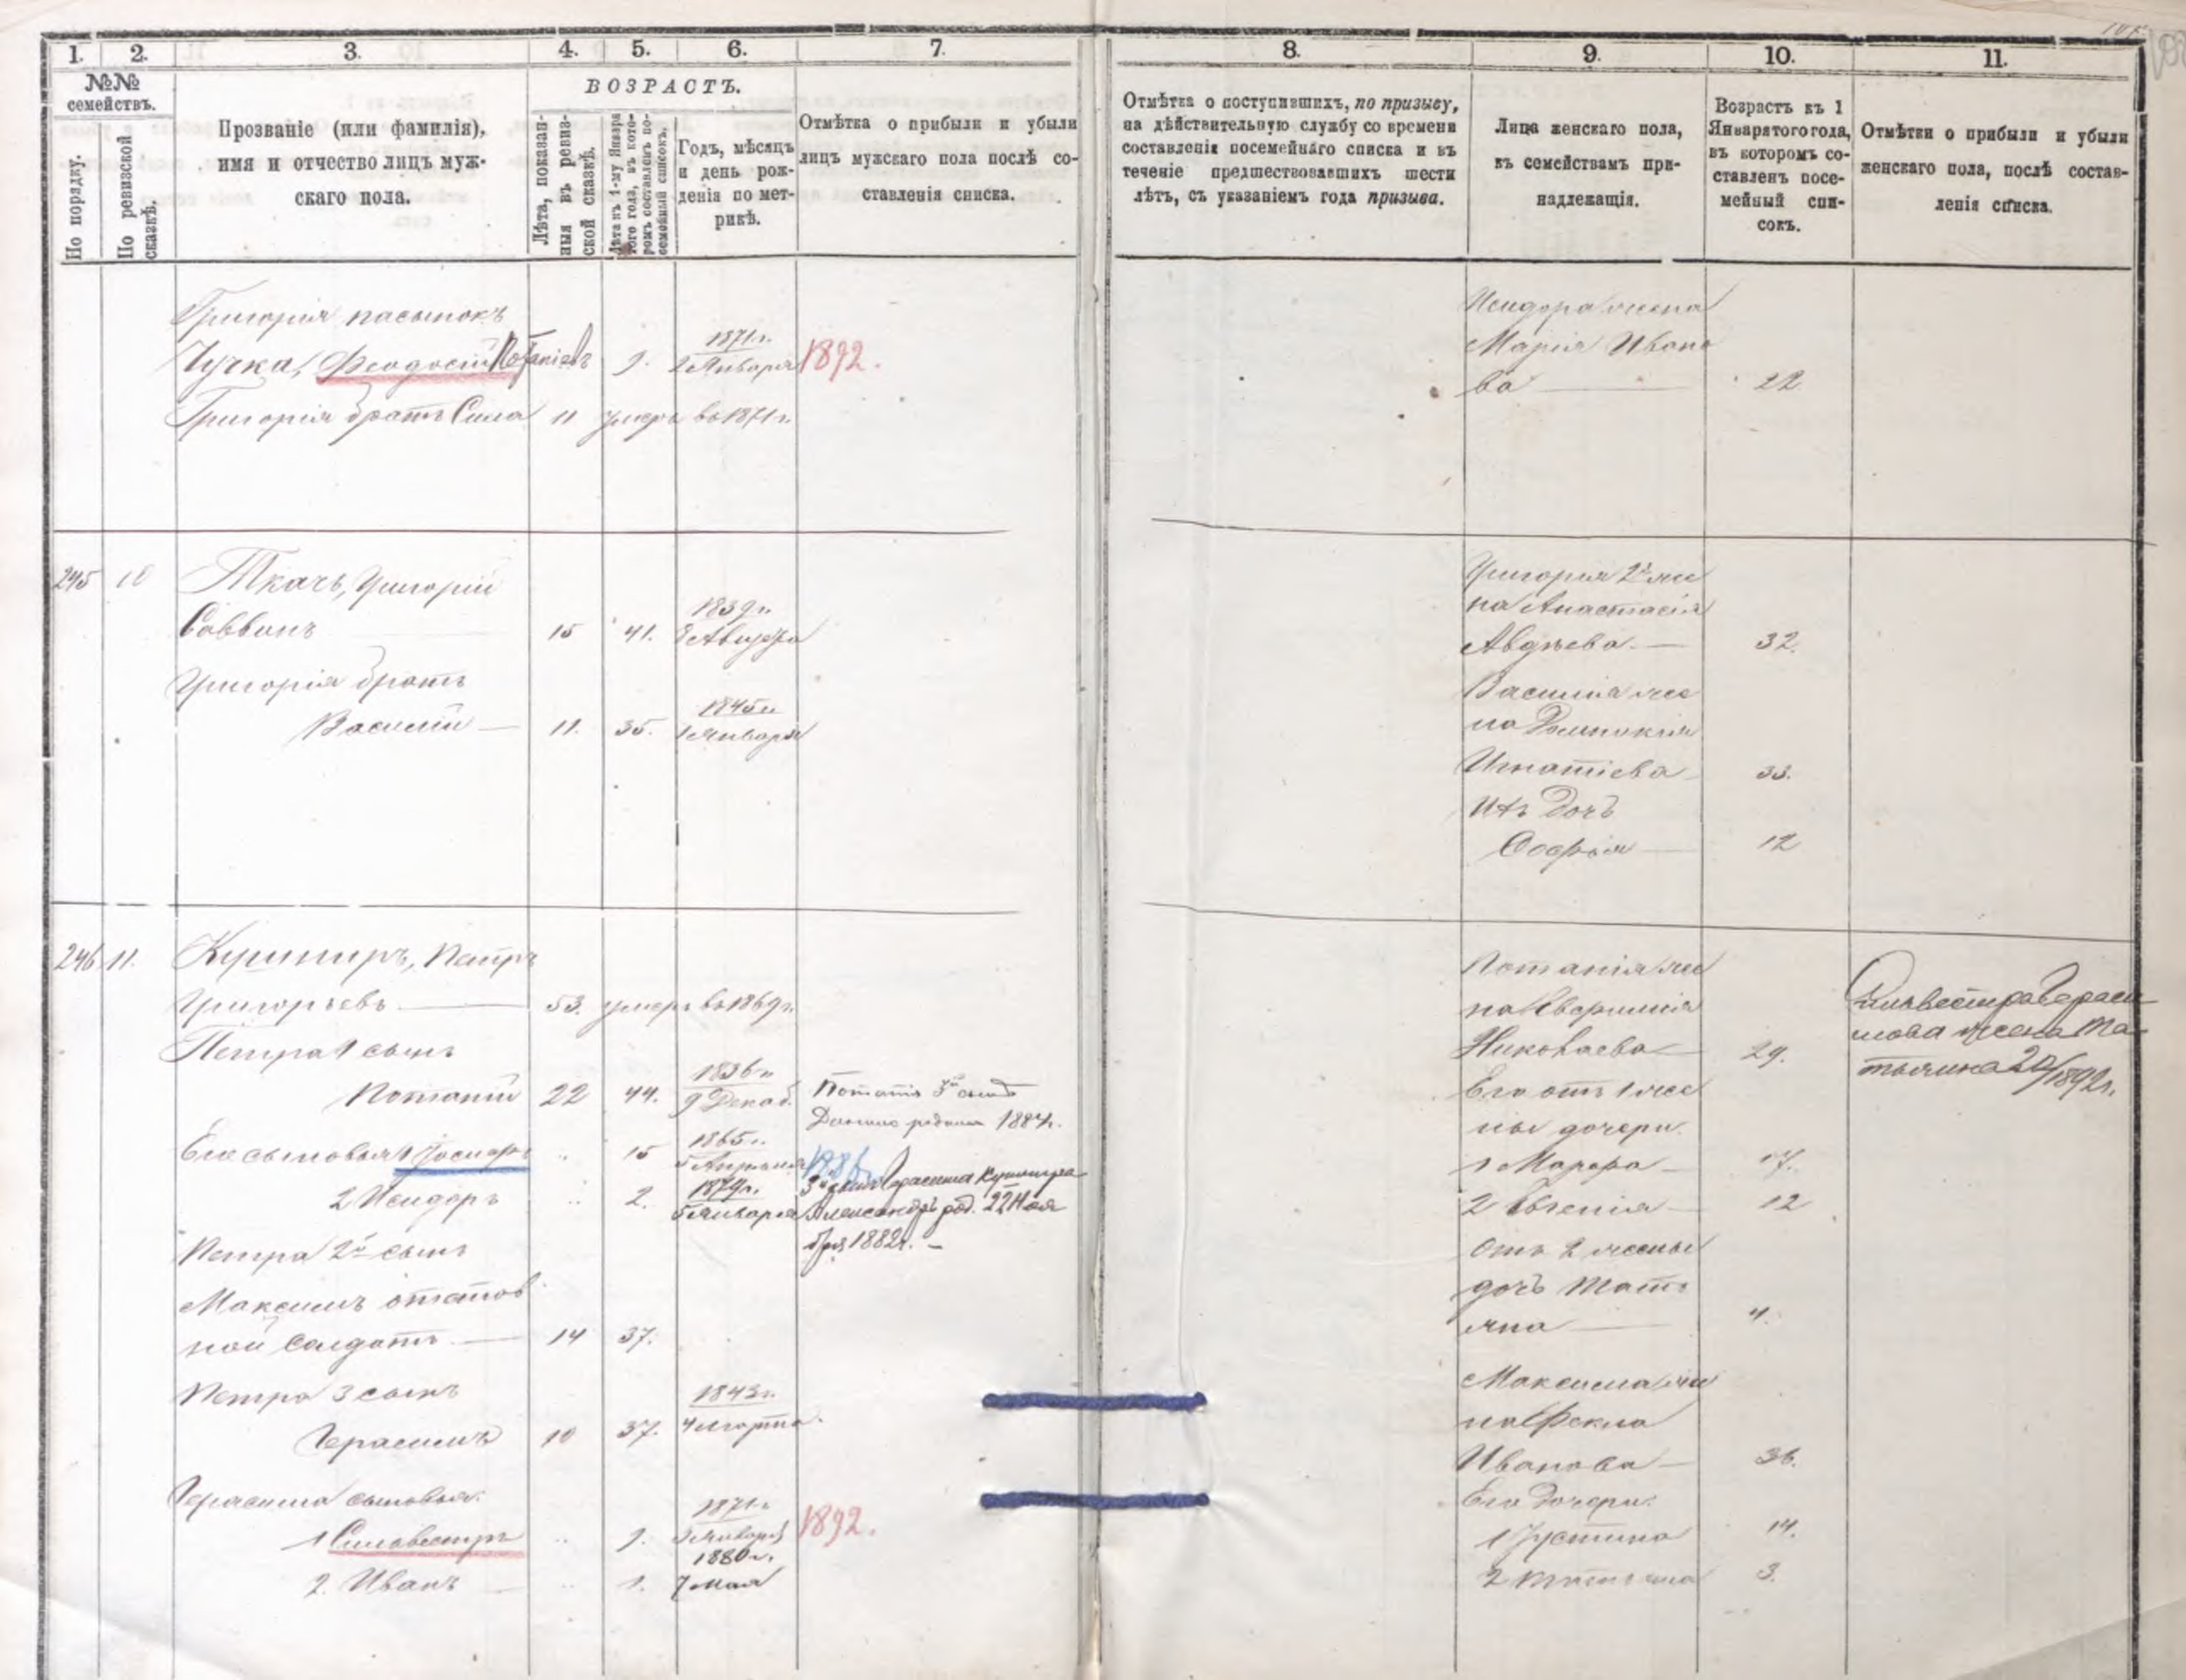 1. 2. 3. 4. 5. 6. 7.
№№ семействъ.
По порядку.
По ревизской сказкѣ.
Прозваніе (или фамилія),
имя и отчество лицъ муж-
скаго пола.
ВОЗРАСТЪ.
Лѣта, показан-
ныя въ ревиз-
ской сказкѣ.
Лѣта къ 1-му Января
того года, въ кото-
ромъ составленъ по-
семейный списокъ.
Годъ, мѣсяцъ
и день рож-
денія по мет-
рикѣ.
Отмѣтка о прибыли и убыли
лицъ мужскаго пола послѣ со-
ставленія списка.
Григорія пасынокъ
1871 г.
Чучка, Феодосій Потаніевъ 9. 2 Января 1892.
Григорія братъ Сила 11 умеръ въ 1871 г.
245 10 Ткачъ, Григорій
1839 г.
Саввинъ 15 41. 8 Августа
Григорія братъ
1845 г.
Василій 11. 35. 1 Января
246 11. Кушниръ, Петръ
Григорьевъ 53. умеръ въ 1869 г.
Петра 1 сынъ
1836 г.
Потапій 22 44. 9 Декаб.
Потапія 3й сынъ
родился 1884 г.
1865 г.
Его сыновья 1 15 5 1886
1879 г.
2 Исидоръ 2. 5 Января
3й сынъ Герасима Кушнира
Александръ род. 22 Ноя
бря 1882 г.
Петра 2й сынъ
Максимъ
ной солдатъ 14 37.
Петра 3 сынъ
1843 г.
Герасимъ 10 37. 4 Марта
Герасима сыновья
1871 г.
1 Сильвестръ 9. Января 1892.
1880 г.
2. Иванъ 1. 7 Мая
8. 9. 10. 11.
Отмѣтка о поступившихъ, по призыву,
на дѣйствительную службу со времени
составленія посемейнаго списка и въ
теченіе предшествовавшихъ шести
лѣтъ, съ указаніемъ года призыва.
Лица женскаго пола,
къ семействамъ при-
надлежащія.
Возрастъ къ 1
Января того года,
въ которомъ со-
ставленъ посе-
мейный спи-
сокъ.
Отмѣтки о прибыли и убыли
женскаго пола, послѣ состав-
ленія списка.
Исидора жена
Марія Ивано
ва 22
Григорія 2я же
на Анастасія
Авдѣева 32.
Василія же
на Евдокія
Игнатіева 33.
ихъ дочь
Софія 12
Потапія же
на
Николаева 29.
Его отъ 1 же
ны дочери
1 Марфа 17.
2 Евгенія 12
Отъ 2 жены
дочь Тать
яна 4.
Максима же
на Фекла
Иванова 36.
Его дочери
1 Устина 14.
2 Татьяна 3.
Сильвестра Гераси
мова жена Та-
тьяна 20/1892 г.